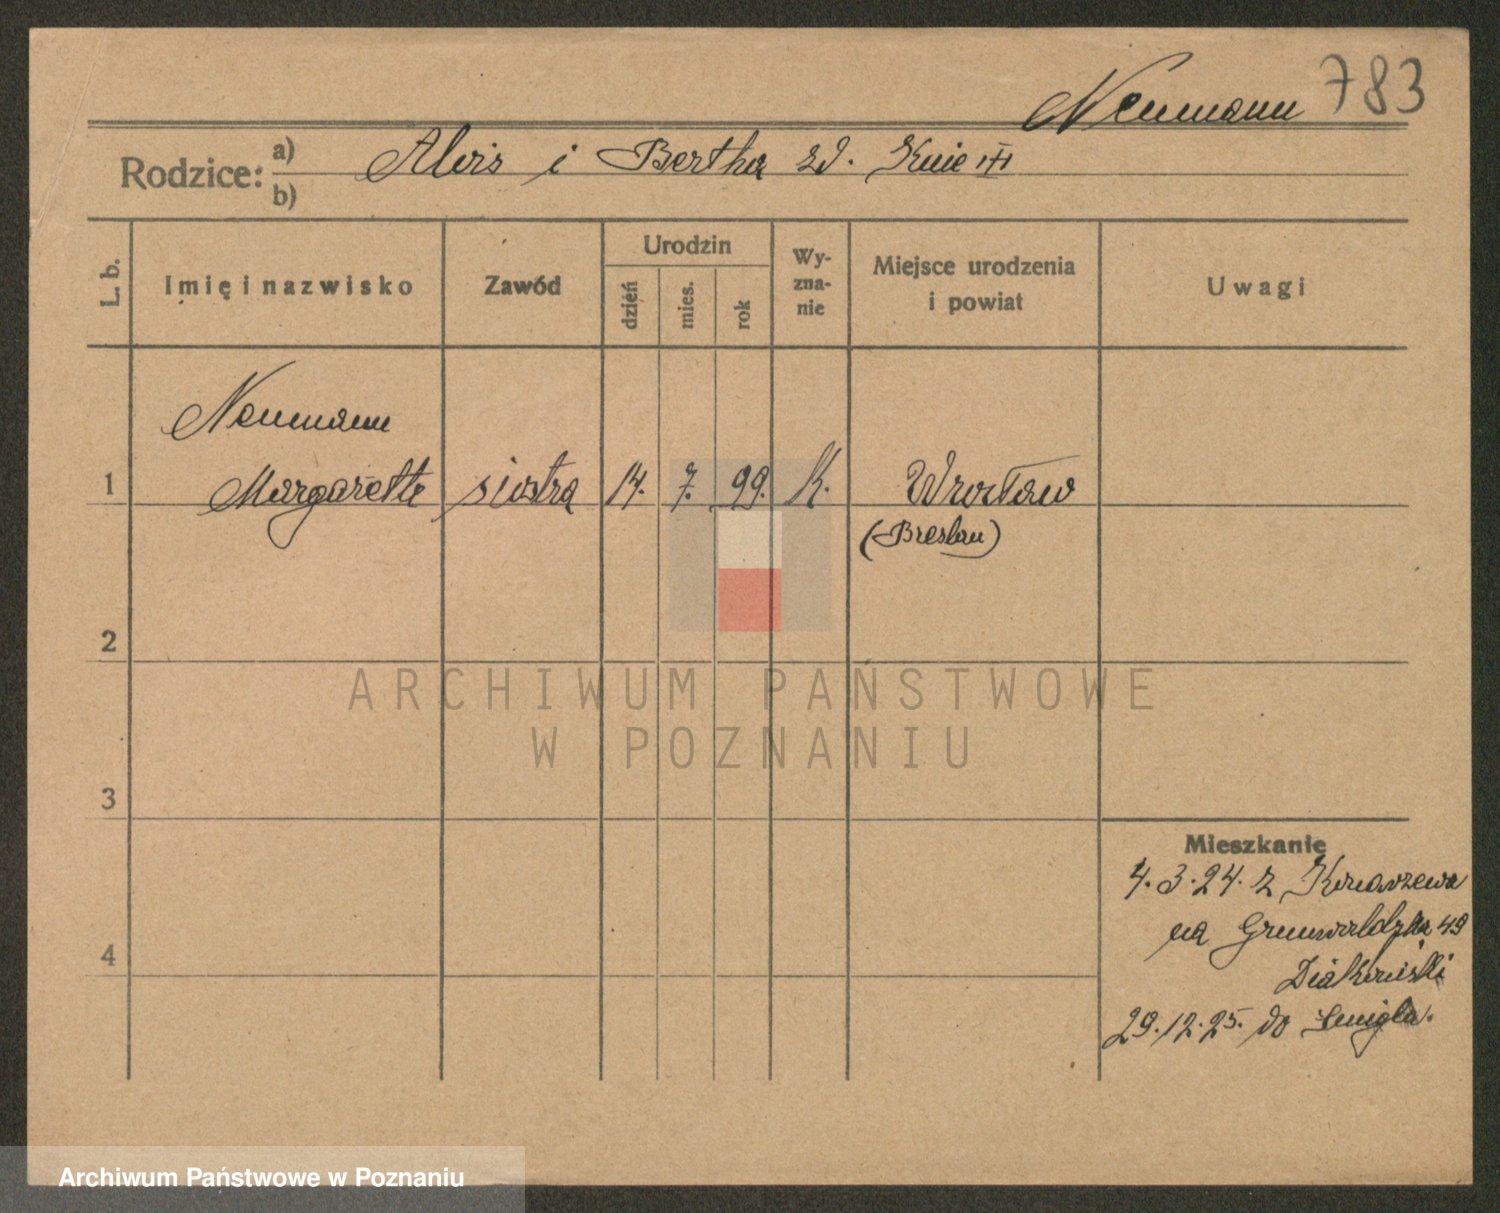 Neumann 783
Rodzice: a) Alois i Bertha zd. Knie
b)
L. b.
Imię i nazwisko
Zawód
Urodzin
dzień
mies.
rok
Wy-
zna-
nie
Miejsce urodzenia
i powiat
Uwagi
Neumann
1 Margarethe siostra 14. 7. 99. k. Wrocław
(Breslau)
2
3
4
Mieszkanie
4.3.24. z Konarzewa
na Grunwaldzka 49
29.12.25. do Śmigla.
ARCHIWUM PAŃSTWOWE
W POZNANIU
Archiwum Państwowe w Poznaniu